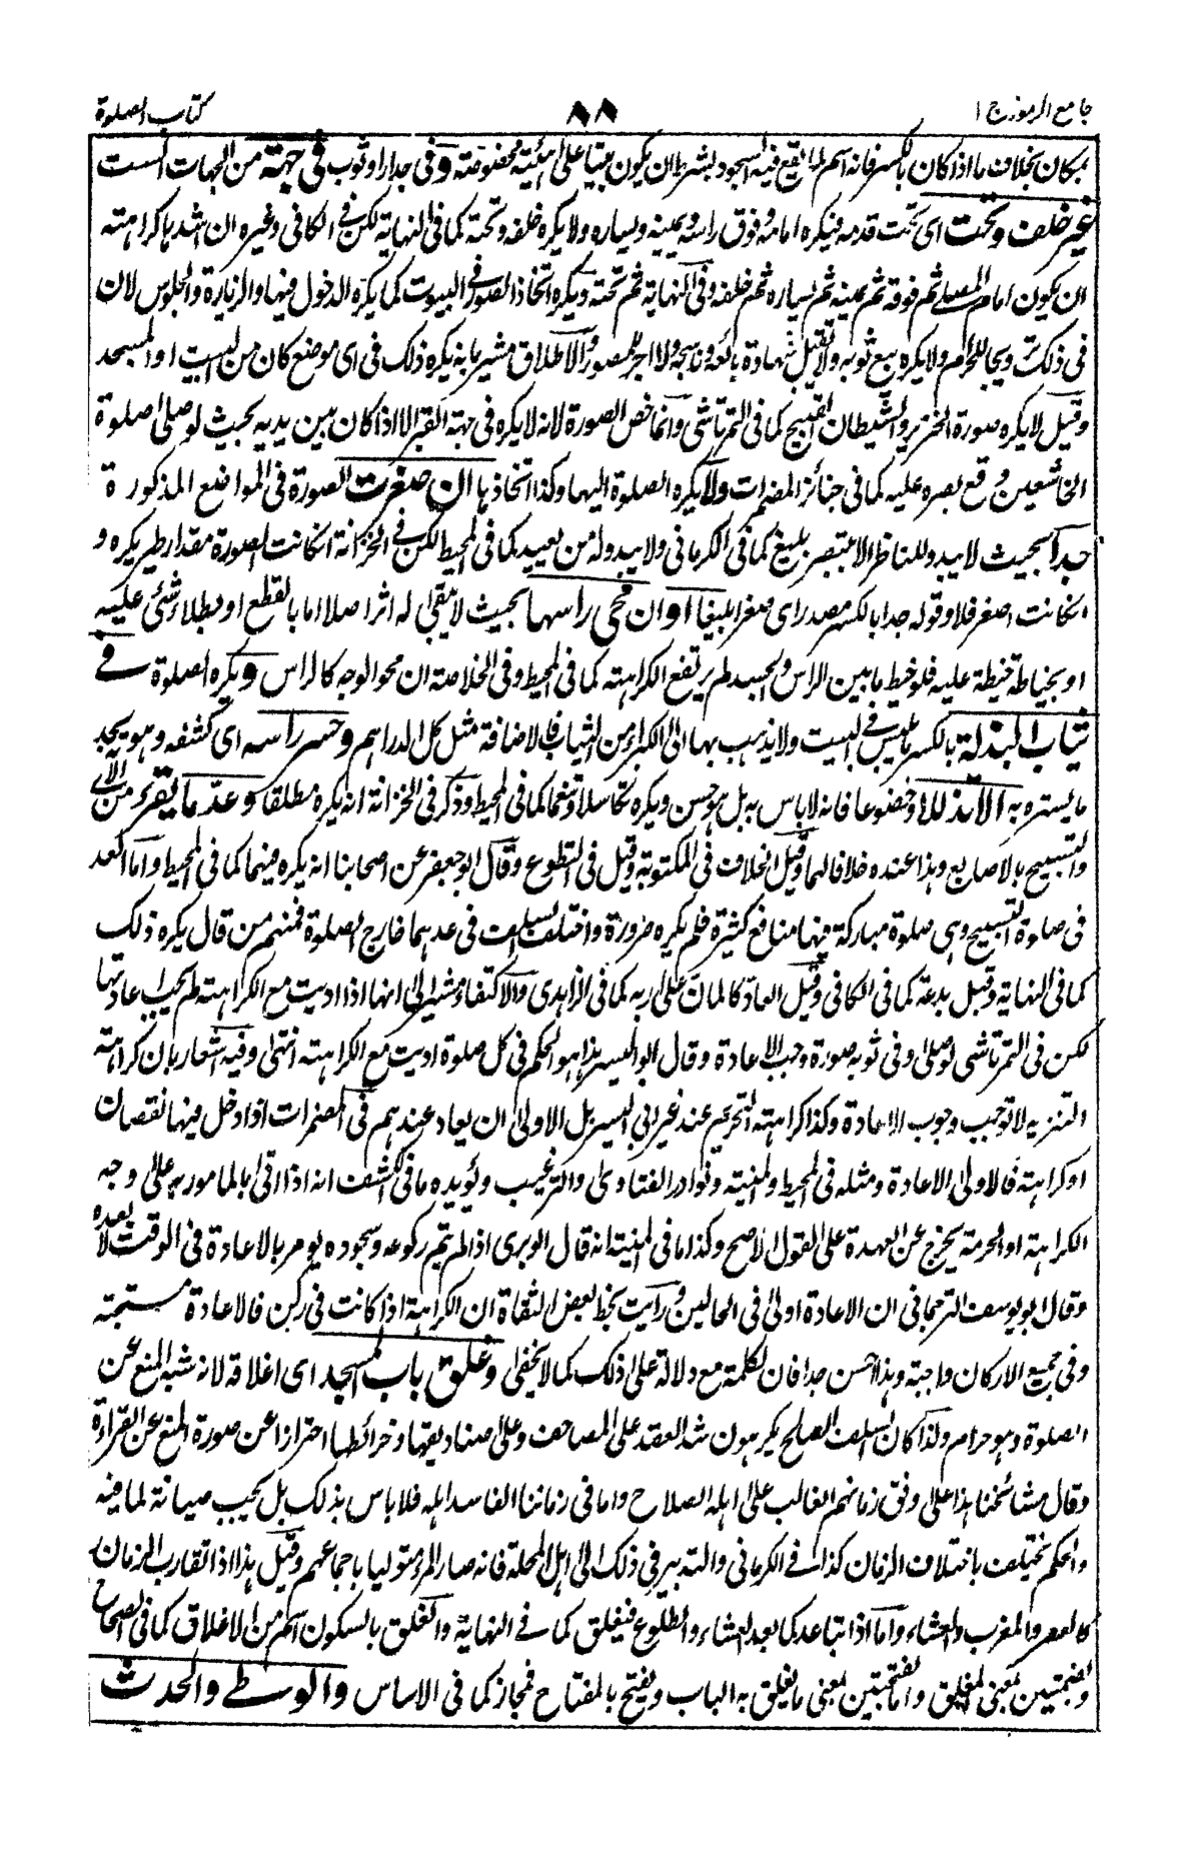 جامع الرموز ج ١
٨٨
كتاب الصلوة
بمكان بخلاف ما اذا كان بالكسر فانه اسم لما يقع فيه السجود بشرط ان يكون بيتا على هيئة مخصوصة وفى جدار او ثوب فى جهة من الجهات الست
غير خلف وتحت اى تحت قدمه فيكره امامه وفوق راسه ويمينه ويساره ولا يكره خلفه وتحته كما فى النهاية لكن فى الكافى وغيره ان اشدها كراهته
ان يكون امام المصلے ثم فوقه ثم يمينه ثم يساره ثم خلفه وفى النهاية ثم تحته ويكره اتخاذ الصور فے البيوت كما يكره الدخول فيها والزيارة والجلوس لان
فى ذلك ولا يكره بيع ثوبه ولا تقبل شهادة بائعه وناسجه ولا اجر للمصور والاطلاق مشير بانه يكره ذلك فى اى موضع كان من البيت او المسجد
وقيل لا يكره صورة الخنزير والشيطان القبيح كما فى التمرتاشى وانما خص الصورة لانه لا يكره فى جهة القبر الا اذا كان بين يديه بحيث لو صلى صلوة
الخاشعين وقع بصره عليه كما فى جنائز المضمرات ولا يكره الصلوة اليها وكذا اتخاذها ان صغرت الصورة فى المواضع المذكورة
جدا بحيث لا يبدو للناظر الا بتبصر بليغ كما فى الكرمانى ولا يبدو له من بعيد كما فى المحيط لكن فے الخزانة ان كانت الصورة مقدار طير يكره و
انكانت اصغر فلا وقوله جدا بالكسر مصدر اى صغرا بليغا او ان محى راسها بحيث لا يبقى له اثر اصلا اما بالقطع او بطلاء شئ عليه
او بخياطة خيطة عليه فلو خيط ما بين الراس والجسد لم يرتفع الكراهته كما فى المحيط وفى الخلاصة ان محو الوجه كالراس ويكره الصلوة فے
ثياب البذلة بالكسر ما يلبس فے البيت ولا يذهب بها الى الكبراء من الثياب فالاضافة مثل كل الدراهم وحسر راسه اى كشفه وهو يجد
ما يستره به الا تذللا وخضوعا فانه لا باس به بل هو حسن ويكره تكاسلا كما فى المحيط وذكر فى الخزانة انه يكره مطلقا وعد ما يقرء من الآى
والتسبيح بالاصابع وهذا عنده خلافا لهما وقيل الخلاف فى المكتوبة وقيل فى التطوع وقال ابو جعفر عن اصحابنا انه يكره فيهما كما فى المحيط واما العد
فى صلوة التسبيح وهى صلوة مباركة فيها منافع كثيرة فلم يكره ضرورة واختلف السلف فى عدهما خارج الصلوة فمنهم من قال يكره ذلك
كما فى النهاية وقيل بدعة كما فى الكافى وقيل العاد كالمان على ربه كما فى الزاهدى والاكتفاء مشير الى انها اذا اديت مع الكراهته لم يجب اعادتها
لكن فى التمرتاشى لو صلى وفى ثوبه صورة وجب الاعادة وقال ابو اليسر هذا هو الحكم فى كل صلوة اديت مع الكراهته انتهى وفيه اشعار بان كراهته
التنزيه لا توجب وجوب الاعادة وكذا كراهته التحريم عند غير ابى اليسر بل الاولى ان يعاد عندهم فى المضمرات اذا دخل فيها نقصان
او كراهته فالاولى الاعادة ومثله فى المحيط والمنيته ونوادر الفتاوى والترغيب ويؤيده ما فى الكشف انه اذا اتى بالمامور به على وجه
الكراهته او الحرمة يخرج عن العهدة على القول الاصح وكذا ما فى المنيته انه قال الوبرى اذا لم يتم ركوعه وسجوده يومر بالاعادة فى الوقت لا بعده
وقال ابو يوسف الترجمانى ان الاعادة اولى فى الحالين ورايت بخط بعض الثقاة ان الكراهة اذا كانت فى ركن فالاعادة مستحبته
وفى جميع الاركان واجبته وهذا احسن جدا فان لكلمة مع دلالة على ذلك كما لا يخفى وغلق باب المسجد اى اغلاقه لانه شبه المنع عن
الصلوة وهو حرام ولذا كان السلف الصلح يكرهون شد العقد على المصاحف وعلى صناديقها وخرائطها احترازا عن صورة المنع عن القراءة
وقال مشائخنا هذا على وفق زمانهم الغالب على اهله الصلاح واما فى زماننا الفاسد اهله فلا باس بذلك بل يجب صيانة لما فيه
والحكم يختلف باختلاف الزمان كذا فے الكرمانى والتدبير فى ذلك الى اهل المحلة فانه صار المرء متوليا باجماعهم وقيل هذا اذا تقارب الزمان
كالعصر والمغرب والعشاء واما اذا تباعد كما بعد العشاء والطلوع فيغلق كما فے النهاية والغلق بالسكون اسم من الاغلاق كما فى الصحاح
وبضمتين بمعنى المغلق واما بفتحتين بمعنى ما يغلق به الباب ويفتح بالمفتاح فمجاز كما فى الاساس والوطے والحدث